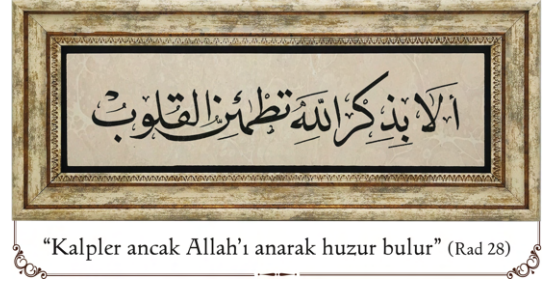 ألا بذكر الله تطمئن القلوب
“Kalpler ancak Allah’ı anarak huzur bulur” (Rad 28)